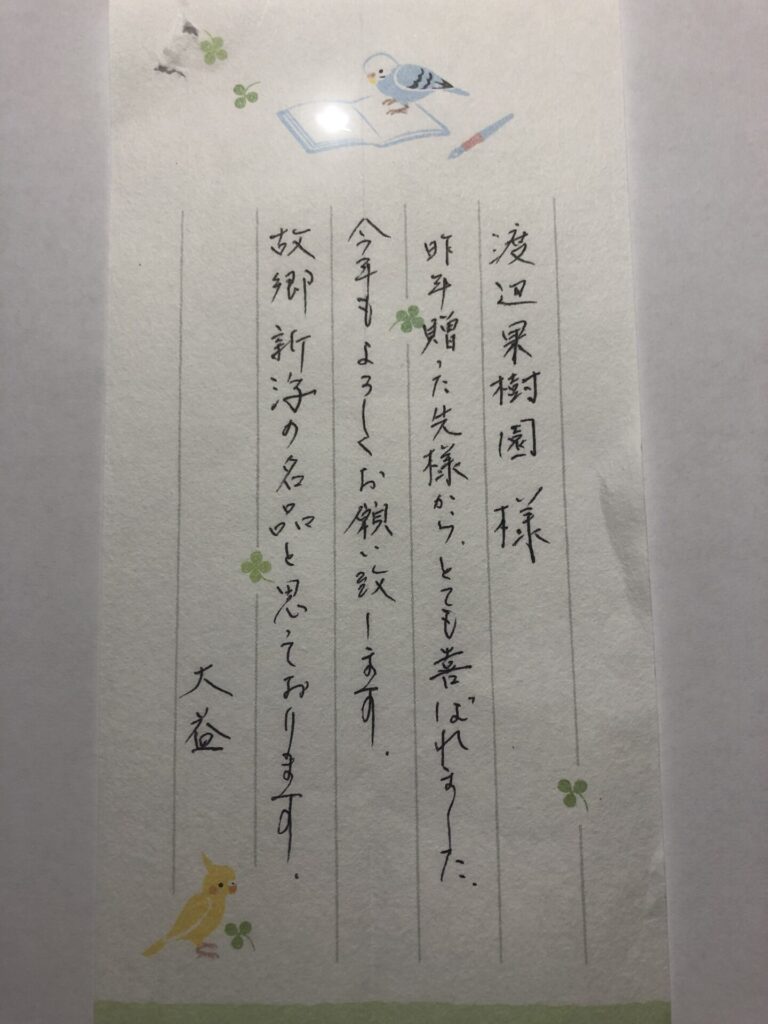 渡辺果樹園 様
昨年贈った先様から、とても喜ばれました。
今年もよろしくお願い致します。
故郷新潟の名品と思っております。
大益